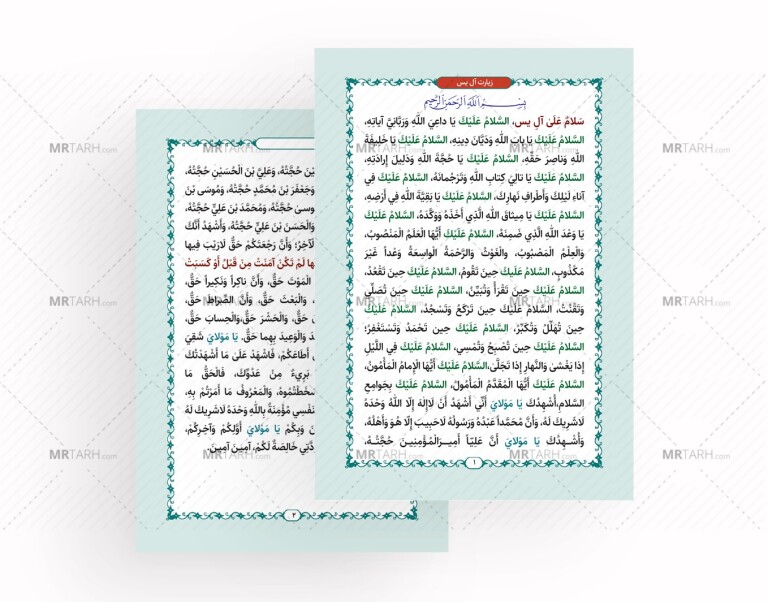 زیارت آل یس
بِسْمِ اللَّهِ الرَّحْمَنِ الرَّحِيمِ
سَلامٌ عَلَىٰ آلِ يس، السَّلامُ عَلَيْكَ يَا داعِيَ اللَّهِ وَرَبَّانِيَّ آياتِهِ،
السَّلامُ عَلَيْكَ يَا بابَ اللَّهِ وَدَيَّانَ دِينِهِ، السَّلامُ عَلَيْكَ يَا خَلِيفَةَ
اللَّهِ وَناصِرَ حَقِّهِ، السَّلامُ عَلَيْكَ يَا حُجَّةَ اللَّهِ وَدَلِيلَ إِرادَتِهِ،
السَّلامُ عَلَيْكَ يَا تالِيَ كِتابِ اللَّهِ وَتَرْجُمانَهُ، السَّلامُ عَلَيْكَ فِي
آناءِ لَيْلِكَ وَأَطْرافِ نَهارِكَ، السَّلامُ عَلَيْكَ يَا بَقِيَّةَ اللَّهِ فِي أَرْضِهِ،
السَّلامُ عَلَيْكَ يَا مِيثاقَ اللَّهِ الَّذِي أَخَذَهُ وَوَكَّدَهُ، السَّلامُ عَلَيْكَ
يَا وَعْدَ اللَّهِ الَّذِي ضَمِنَهُ، السَّلامُ عَلَيْكَ أَيُّهَا الْعَلَمُ الْمَنْصُوبُ،
وَالْعِلْمُ الْمَصْبُوبُ، وَالْغَوْثُ وَالرَّحْمَةُ الْواسِعَةُ وَعْداً غَيْرَ
مَكْذُوبٍ، السَّلامُ عَلَيْكَ حِينَ تَقُومُ، السَّلامُ عَلَيْكَ حِينَ تَقْعُدُ،
السَّلامُ عَلَيْكَ حِينَ تَقْرَأُ وَتُبَيِّنُ، السَّلامُ عَلَيْكَ حِينَ تُصَلِّي
وَتَقْنُتُ، السَّلامُ عَلَيْكَ حِينَ تَرْكَعُ وَتَسْجُدُ، السَّلامُ عَلَيْكَ
حِينَ تُهَلِّلُ وَتُكَبِّرُ، السَّلامُ عَلَيْكَ حِينَ تَحْمَدُ وَتَسْتَغْفِرُ؛
السَّلامُ عَلَيْكَ حِينَ تُصْبِحُ وَتُمْسِي، السَّلامُ عَلَيْكَ فِي اللَّيْلِ
إِذا يَغْشىٰ وَالنَّهارِ إِذا تَجَلَّىٰ،السَّلامُ عَلَيْكَ أَيُّهَا الْإِمامُ الْمَأْمُونُ،
السَّلامُ عَلَيْكَ أَيُّهَا الْمُقَدَّمُ الْمَأْمُولُ، السَّلامُ عَلَيْكَ بِجَوامِعِ
السَّلامِ.أُشْهِدُكَ يَا مَوْلايَ أَنِّي أَشْهَدُ أَنْ لَاإِلٰهَ إِلّا اللَّهُ وَحْدَهُ
لَاشَرِيكَ لَهُ، وَأَنَّ مُحَمَّداً عَبْدُهُ وَرَسُولُهُ لَاحَبِيبَ إِلّا هُوَ وَأَهْلُهُ،
وَأُشْهِدُكَ يَا مَوْلايَ أَنَّ عَلِيّاً أَمِيرَالْمُؤْمِنِينَ حُجَّتُهُ،
١
حُجَّتُهُ، وَعَلِيَّ بْنَ الْحُسَيْنِ حُجَّتُهُ،
وَجَعْفَرَ بْنَ مُحَمَّدٍ حُجَّتُهُ، وَمُوسَى بْنَ
حُجَّتُهُ، وَمُحَمَّدَ بْنَ عَلِيٍّ حُجَّتُهُ،
وَالْحَسَنَ بْنَ عَلِيٍّ حُجَّتُهُ، وَأَشْهَدُ أَنَّكَ
وَأَنَّ رَجْعَتَكُمْ حَقٌّ لَارَيْبَ فِيها
لَمْ تَكُنْ آمَنَتْ مِنْ قَبْلُ أَوْ كَسَبَتْ
الْمَوْتَ حَقٌّ، وَأَنَّ ناكِراً وَنَكِيراً حَقٌّ،
وَالْبَعْثَ حَقٌّ، وَأَنَّ الصِّراطَ حَقٌّ،
حَقٌّ، وَالْحَشْرَ حَقٌّ،وَالْحِسابَ حَقٌّ،
وَالْوَعِيدَ بِهِما حَقٌّ. يَا مَوْلايَ شَقِيَ
أَطاعَكُمْ، فَاشْهَدْ عَلَىٰ مَا أَشْهَدْتُكَ
بَرِيءٌ مِنْ عَدُوِّكَ، فَالْحَقُّ مَا
وَالْمَعْرُوفُ مَا أَمَرْتُمْ بِهِ،
مُؤْمِنَةٌ بِاللَّهِ وَحْدَهُ لَاشَرِيكَ لَهُ
وَبِكُمْ يَا مَوْلايَ أَوَّلِكُمْ وَآخِرِكُمْ،
خالِصَةٌ لَكُمْ، آمِينَ آمِينَ.
٢
MRTARH.com